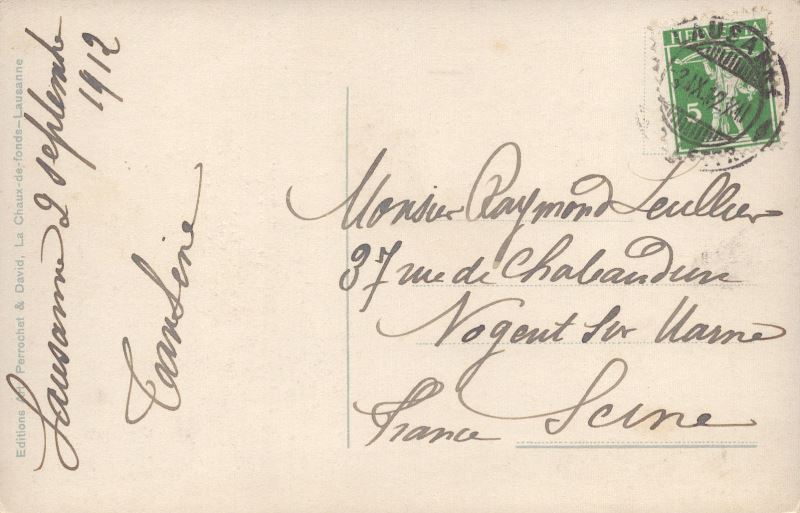 Lausanne 2 septembre
1912
Editions Art Perrochet & David, La Chaux-de-fonds—Lausanne
HELVETIA
5
LAUSANNE
2.IX.12.XVII
Monsier Raymond Leullier
37 rue de Chabaudun
Nogent sur Marne
Seine
France